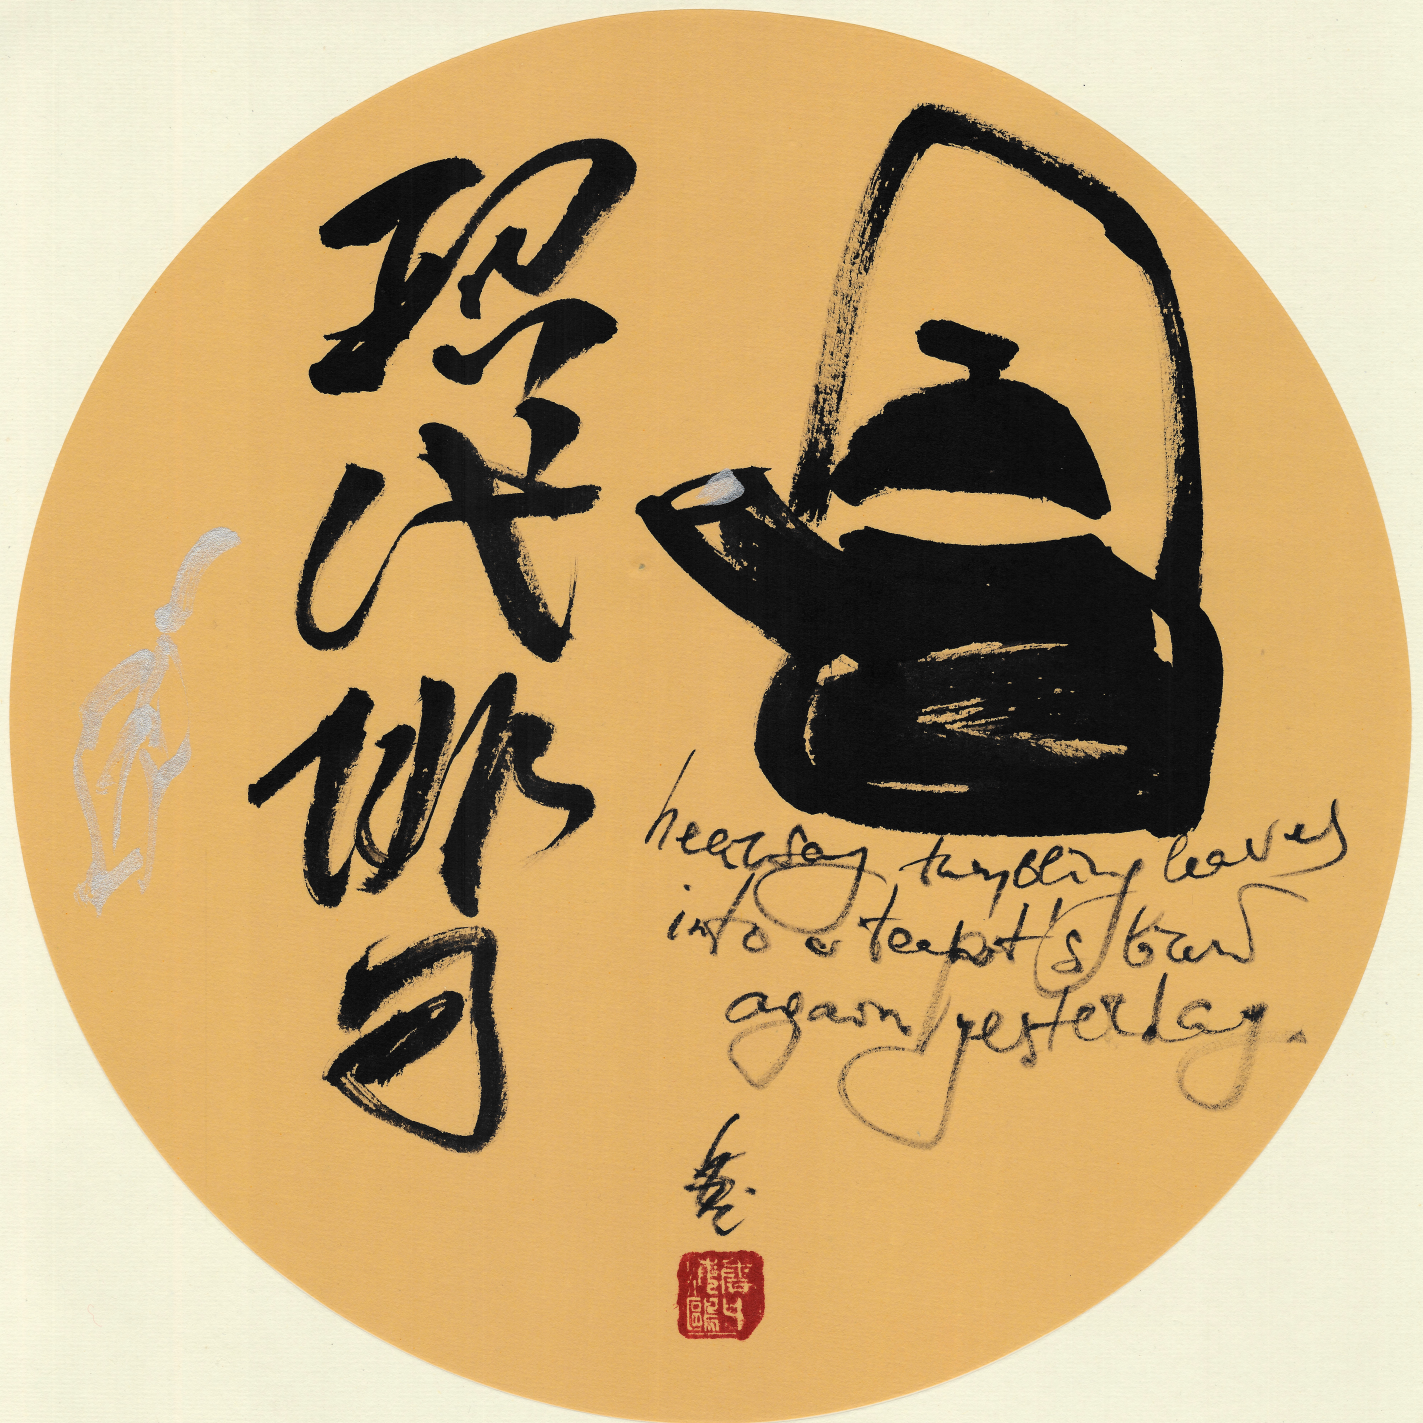 現代俳句
hearsay tumbling leaves
into a teapot's
again yesterday.